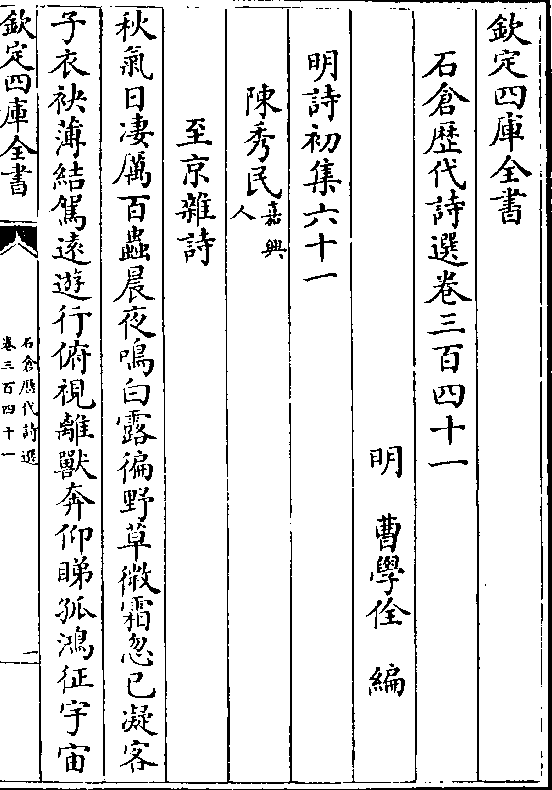 欽定四庫全書
石倉歴代詩選卷三百四十一
明　曹學佺　編
明詩初集六十一
陳秀民嘉興人
至京雜詩
秋氣日凄厲百蟲晨夜鳴白露徧野草微霜忽已凝客
子衣袂薄結駕遠遊行俯視離獸奔仰睇孤鴻征宇宙
欽定四庫全書
石倉歴代詩選
卷三百四十一
一